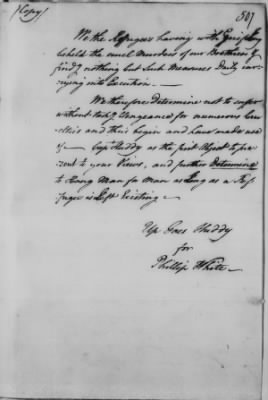 (Copy)
507
We the Refugees having with Grief Long
beheld the cruel Murders of our Brethren &
finding nothing but Such Measures Daily carrying
into Execution —
We therefore Determine not to suffer
without taking Vengeance for numerous
Cruelties and thus begin and have made use
of Capt Huddy as the first Object to present
to your Views, and further Determine
to Hang Man for Man as Long as a Refugee
is Left Existing —
Up Goes Huddy
for
Phillip White —